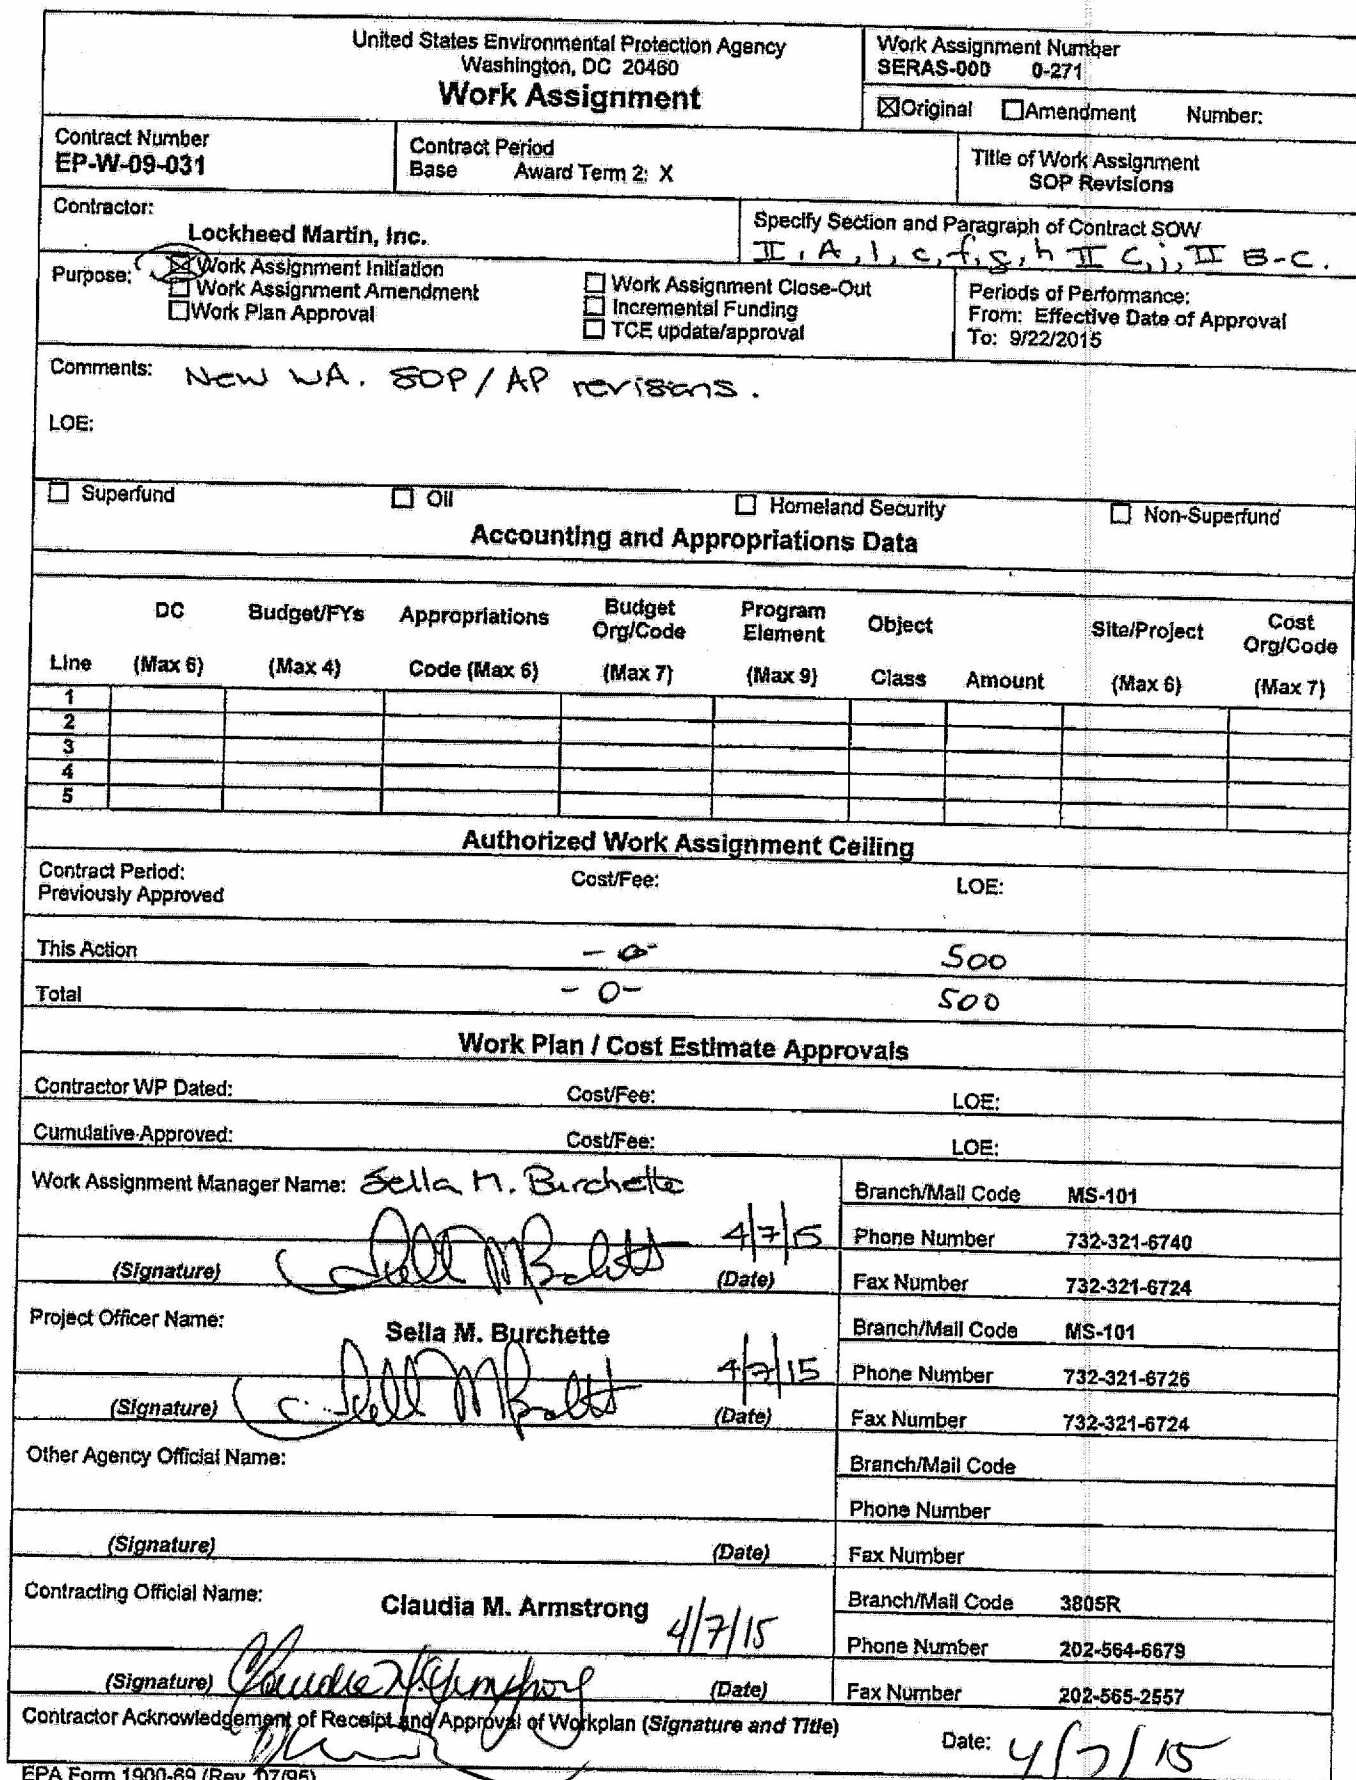 United States Environmental Protection Agency
Washington, DC 20460
Work Assignment
Work Assignment Number
SERAS-000 0-271
☒Original ☐Amendment Number:
Contract Number
EP-W-09-031
Contract Period
Base Award Term 2: X
Title of Work Assignment
SOP Revisions
Contractor:
Lockheed Martin, Inc.
Specify Section and Paragraph of Contract SOW
II, A, 1, c, f, g, h II C, j, II B-C.
Purpose:
☒Work Assignment Initiation
☐Work Assignment Amendment
☐Work Plan Approval
☐ Work Assignment Close-Out
☐ Incremental Funding
☐ TCE update/approval
Periods of Performance:
From: Effective Date of Approval
To: 9/22/2015
Comments: New WA. SOP/AP revisions.
LOE:
☐ Superfund ☐ Oil ☐ Homeland Security ☐ Non-Superfund
Accounting and Appropriations Data
DC Budget/FYs Appropriations Budget Org/Code Program Element Object Site/Project Cost Org/Code
Line (Max 6) (Max 4) Code (Max 6) (Max 7) (Max 9) Class Amount (Max 6) (Max 7)
1
2
3
4
5
Authorized Work Assignment Ceiling
Contract Period: Cost/Fee: LOE:
Previously Approved
This Action -0- 500
Total -0- 500
Work Plan / Cost Estimate Approvals
Contractor WP Dated: Cost/Fee: LOE:
Cumulative Approved: Cost/Fee: LOE:
Work Assignment Manager Name: Sella M. Burchette
Branch/Mail Code MS-101
4/7/15
Phone Number 732-321-6740
(Signature) (Date)
Fax Number 732-321-6724
Project Officer Name:
Sella M. Burchette
Branch/Mail Code MS-101
4/7/15
Phone Number 732-321-6726
(Signature) (Date)
Fax Number 732-321-6724
Other Agency Official Name:
Branch/Mail Code
Phone Number
(Signature) (Date)
Fax Number
Contracting Official Name:
Claudia M. Armstrong
4/7/15
Branch/Mail Code 3805R
Phone Number 202-564-6679
(Signature) Claudia M. Armstrong (Date)
Fax Number 202-565-2557
Contractor Acknowledgement of Receipt and Approval of Workplan (Signature and Title)
Date: 4/7/15
EPA Form 1900-69 (Rev. 07/95)